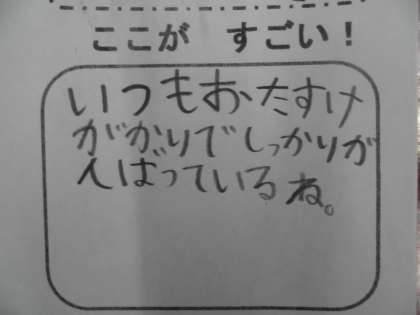 ここが すごい！
いつもおたすけ
がかりでしっかりが
んばっているね。